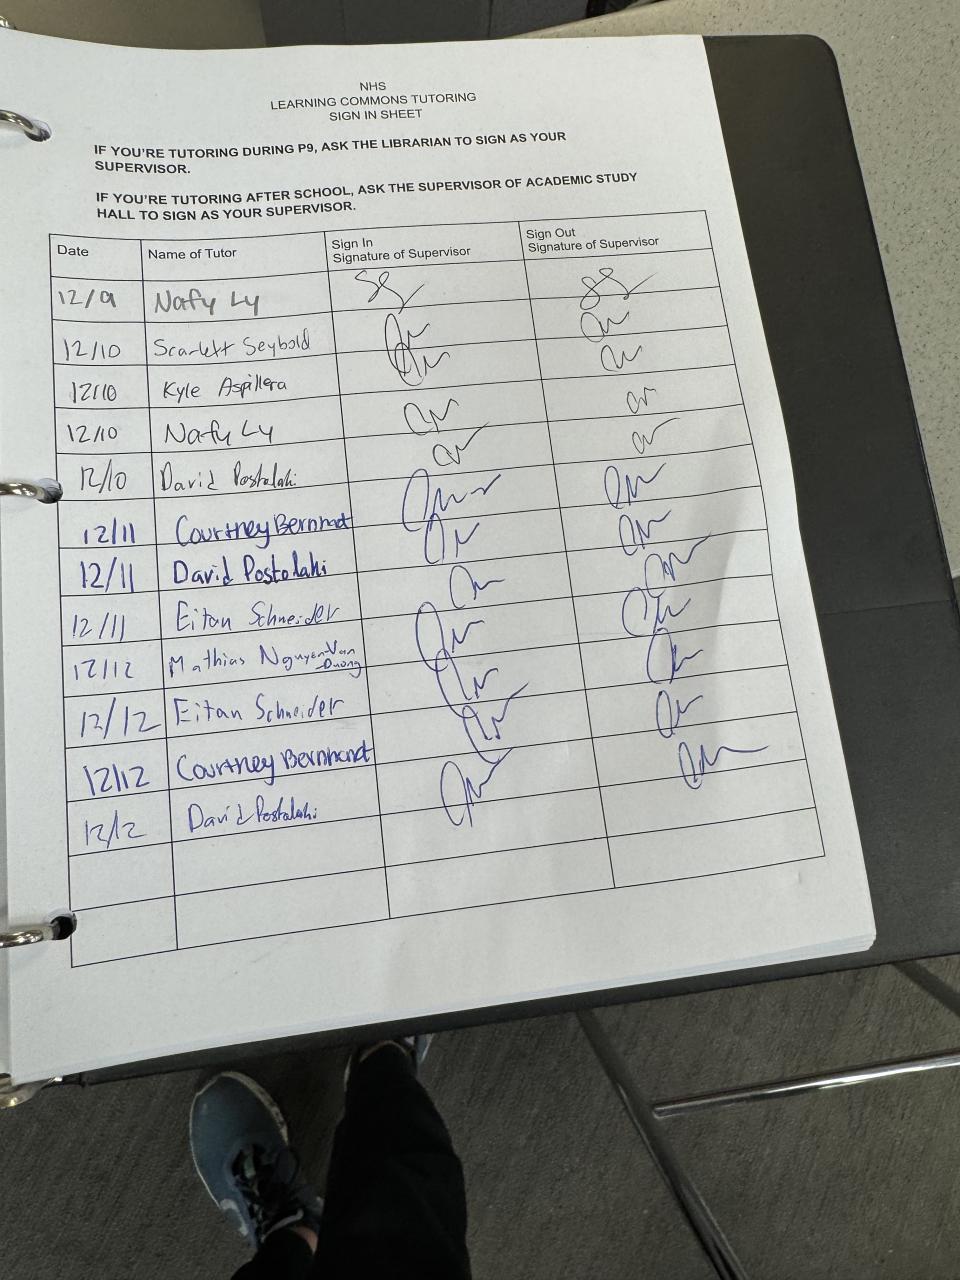 NHS
LEARNING COMMONS TUTORING
SIGN IN SHEET
IF YOU'RE TUTORING DURING P9, ASK THE LIBRARIAN TO SIGN AS YOUR
SUPERVISOR.
IF YOU'RE TUTORING AFTER SCHOOL, ASK THE SUPERVISOR OF ACADEMIC STUDY
HALL TO SIGN AS YOUR SUPERVISOR.
Date Name of Tutor Sign In Signature of Supervisor Sign Out Signature of Supervisor
12/9 Nafy Ly
12/10 Scarlett Seybold
12/10 Kyle Aspillera
12/10 Nafy Ly
12/10 David Postolahi
12/11 Courtney Bernhardt
12/11 David Postolahi
12/11 Eitan Schneider
12/12 Mathias Nguyen-Van
Duong
12/12 Eitan Schneider
12/12 Courtney Bernhardt
12/12 David Postolahi